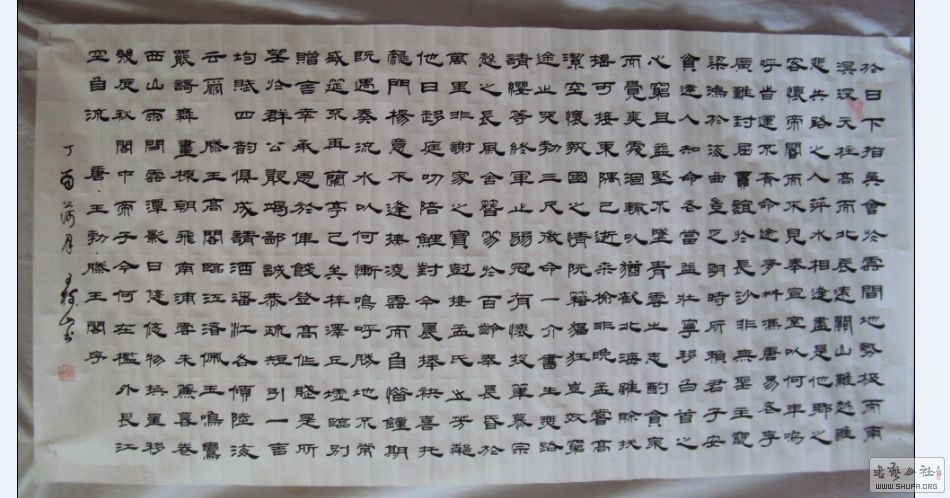 於日下指吳會於雲間地勢極而南
溟深天柱高而北辰遠關山難越誰
悲失路之人萍水相逢盡是他鄉之
客懷帝閽而不見奉宣室以何年嗚
呼時運不齊命途多舛馮唐易老李
廣難封屈賈誼於長沙非無聖主竄
梁鴻於海曲豈乏明時所賴君子安
貧達人知命老當益壯寧移白首之
心窮且益堅不墜青雲之志酌貪泉
而覺爽處涸轍以猶歡北海雖賒扶
搖可接東隅已逝桑榆非晚孟嘗高
潔空懷報國之情阮籍猖狂豈效窮
途之哭勃三尺微命一介書生無路
請纓等終軍之弱冠有懷投筆慕宗
愨之長風舍簪笏於百齡奉晨昏於
萬里非謝家之寶樹接孟氏之芳鄰
他日趨庭叨陪鯉對今晨捧袂喜托
龍門楊意不逢撫凌雲而自惜鐘期
既遇奏流水以何慚嗚呼勝地不常
盛筵不再蘭亭已矣梓澤丘墟臨別
贈言幸承恩於偉餞登高作賦是所
望於群公敢竭鄙誠恭疏短引一言
均賦四韵俱成請洒潘江各傾陸海
云爾 滕王高閣臨江渚佩玉鳴鸞
罷歌舞畫棟朝飛南浦雲朱簾暮卷
西山雨閒雲潭影日悠物換星移
幾度秋閣中帝子今何在檻外長江
空自流 唐王勃滕王閣序
丁酉荷月 書
WWW.SHUFA.ORG